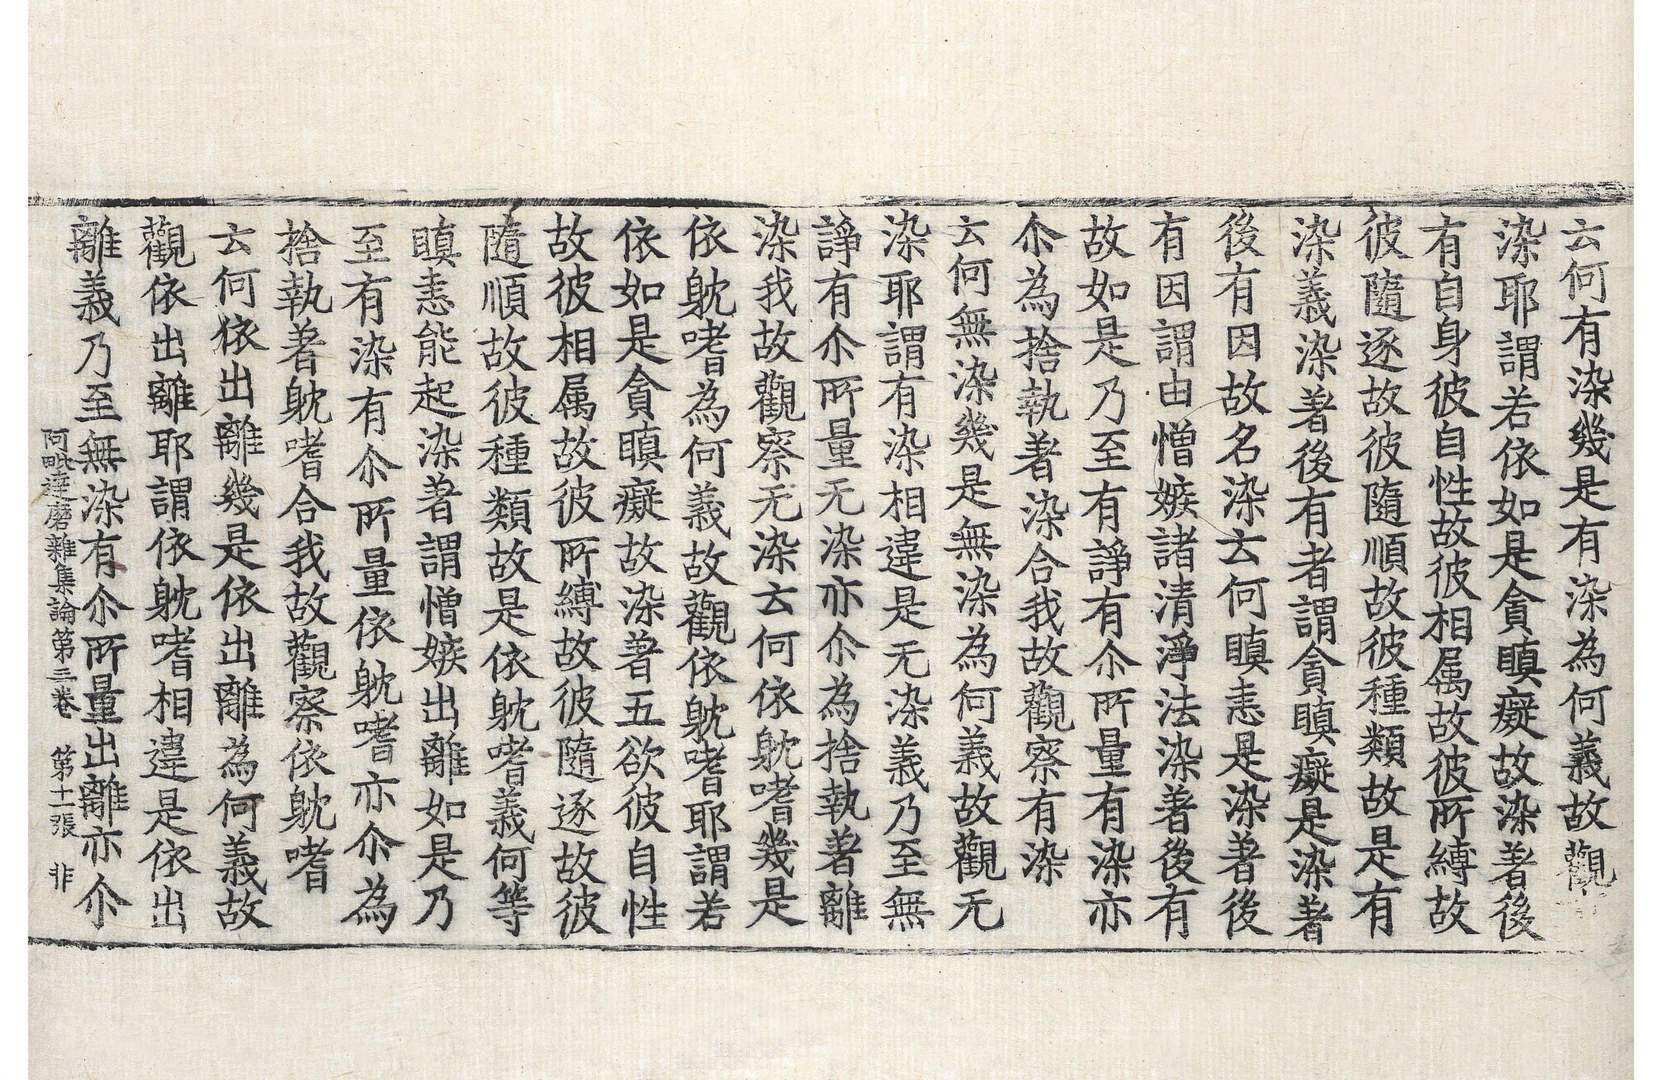 云何有染幾是有染為何義故觀
染耶謂若依如是貪瞋癡故染著後
有自身彼自性故彼相属故彼所縛故
彼隨逐故彼隨順故彼種類故是有
染義染著後有者謂貪瞋癡是染著
後有因故名染云何瞋恚是染著後
有因謂由憎嫉諸清淨法染著後有
故如是乃至有諍有尒所量有染亦
尒為捨執著染合我故觀察有染
云何無染幾是無染為何義故觀无
染耶謂有染相違是无染義乃至無
諍有尒所量无染亦尒為捨執著離
染我故觀察无染云何依躭嗜幾是
依躭嗜為何義故觀依躭嗜耶謂若
依如是貪瞋癡故染著五欲彼自性
故彼相属故彼所縛故彼隨逐故彼
隨順故彼種類故是依躭嗜義何等
瞋恚能起染著謂憎嫉出離如是乃
至有染有尒所量依躭嗜亦尒為
捨執著躭嗜合我故觀察依躭嗜
云何依出離幾是依出離為何義故
觀依出離耶謂依躭嗜相違是依出
離義乃至無染有尒所量出離亦尒
阿毗達磨雜集論第三卷 第十一張 非